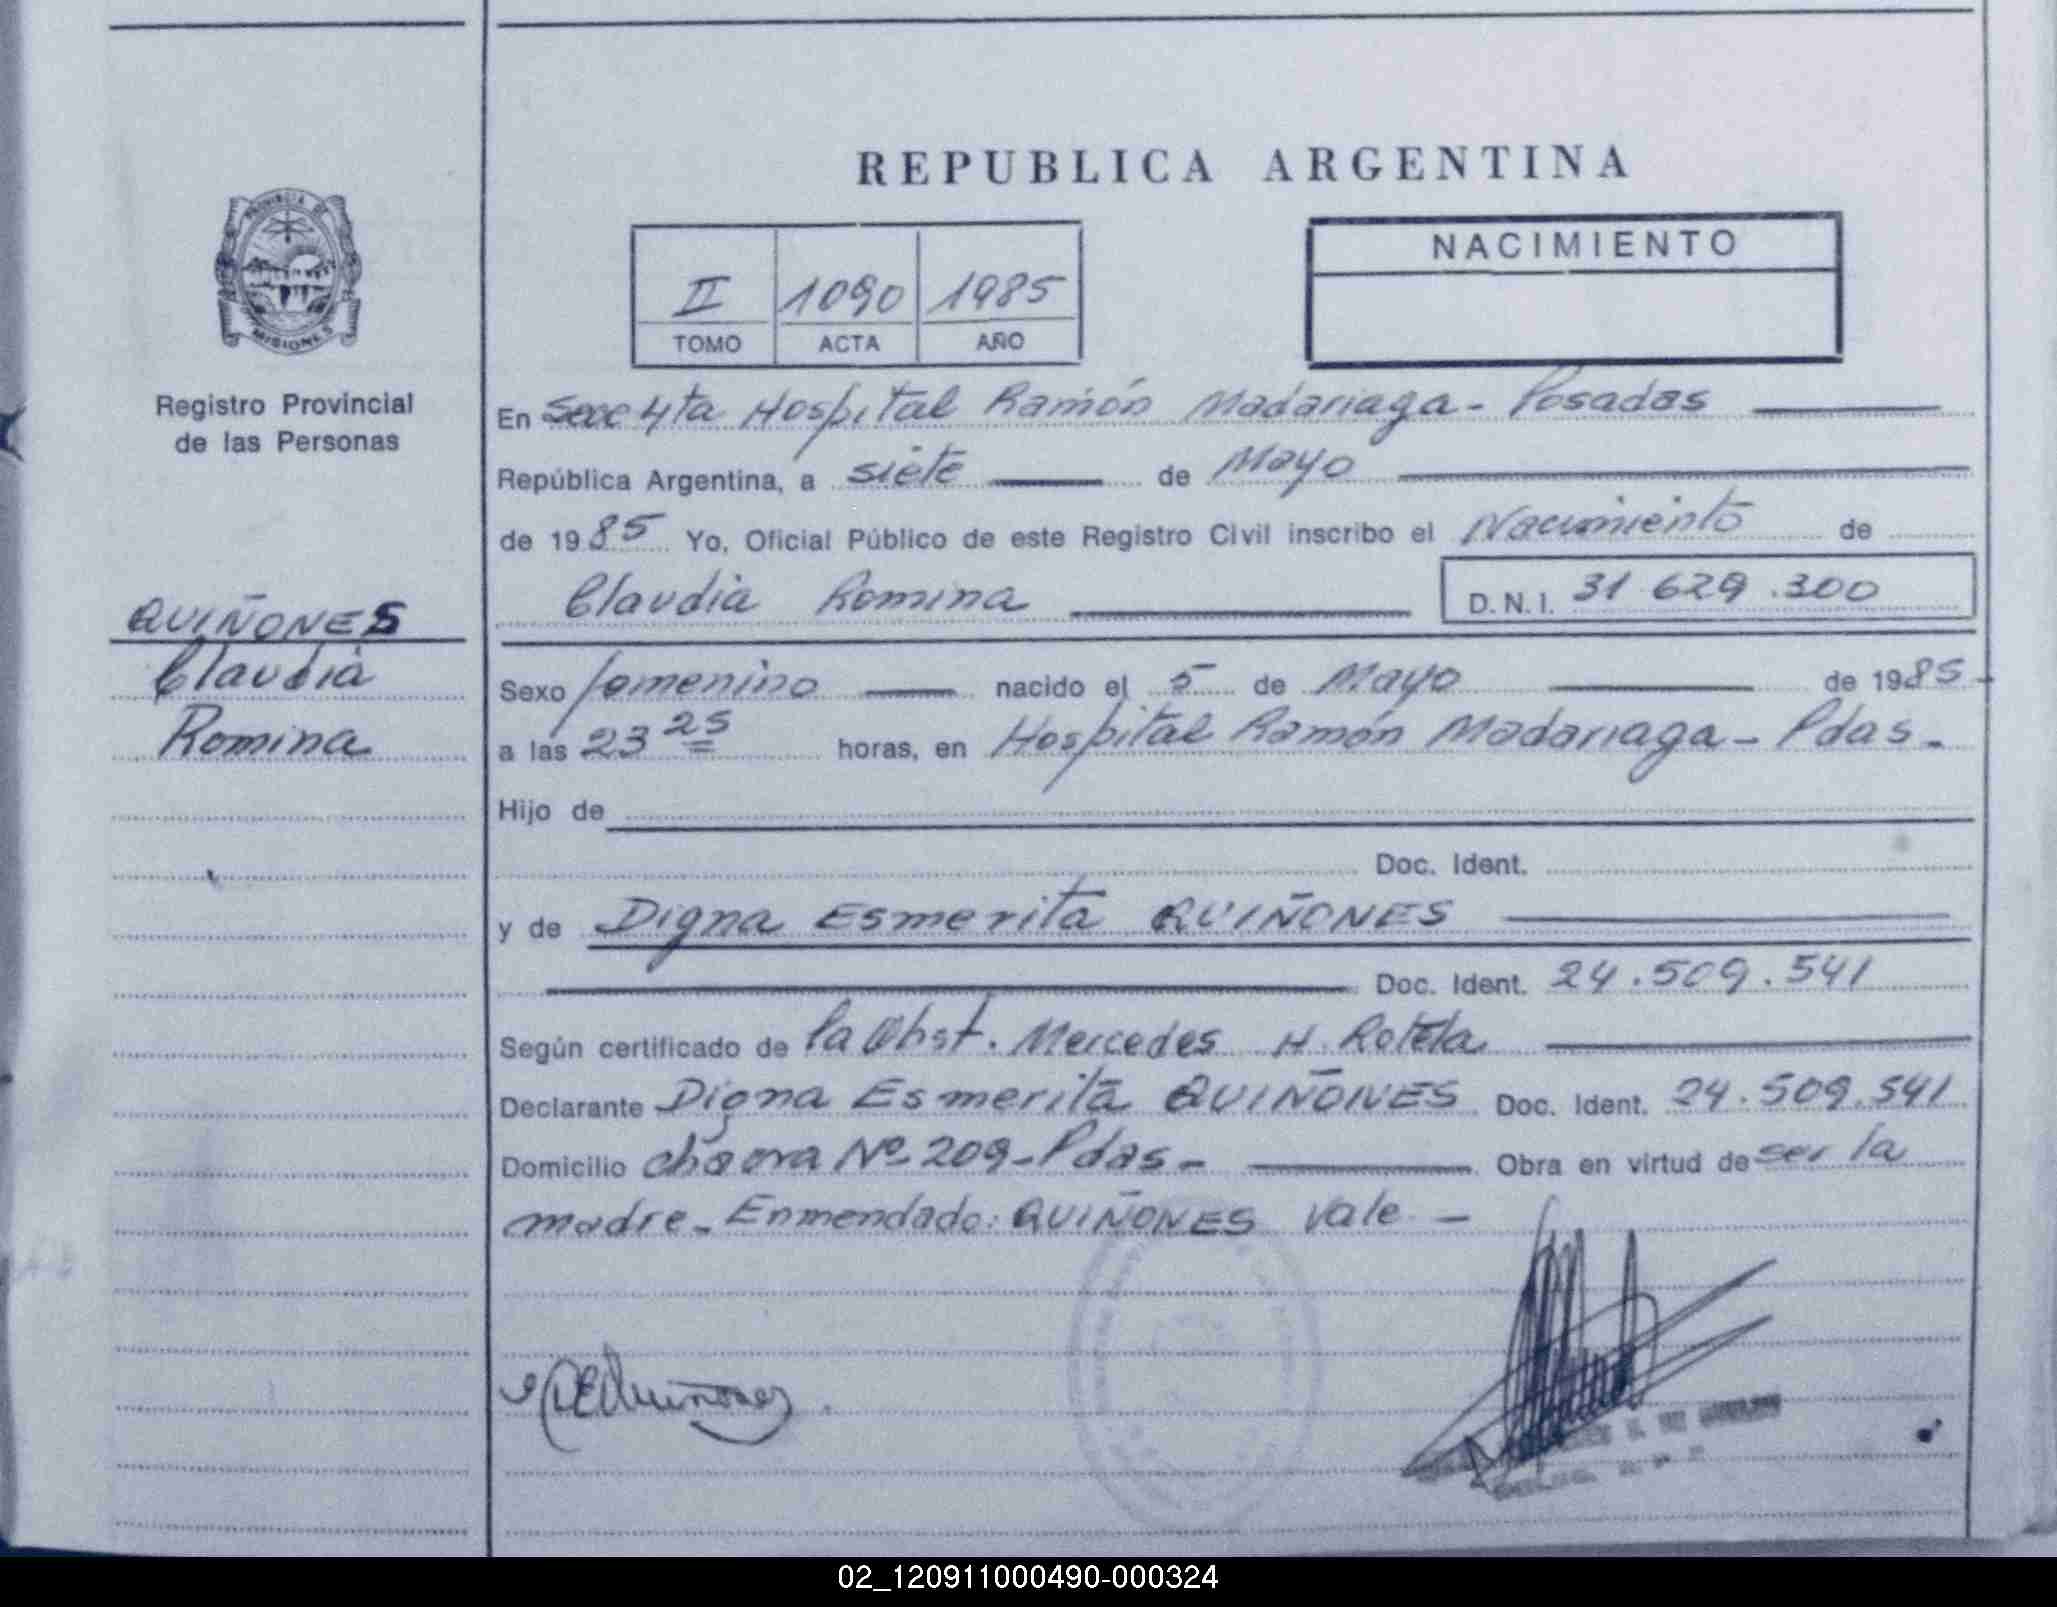 REPUBLICA ARGENTINA
PROVINCIA DE
MISIONES
Registro Provincial
de las Personas
QUIÑONES
Claudia
Romina
II 1090 1985
TOMO ACTA AÑO
NACIMIENTO
En Secc 4ta Hospital Ramón Madariaga - Posadas
República Argentina, a siete de Mayo
de 1985 Yo, Oficial Público de este Registro Civil inscribo el Nacimiento de
Claudia Romina D.N.I. 31 629.300
Sexo femenino nacido el 5 de Mayo de 1985
a las 23 25 horas, en Hospital Ramón Madariaga - Pdas -
Hijo de
Doc. Ident.
y de Digna Esmerita QUIÑONES
Doc. Ident. 24.509.541
Según certificado de la Obst. Mercedes H. Rotela
Declarante Digna Esmerita QUIÑONES Doc. Ident. 24.509.541
Domicilio chacra Nº 209 - Pdas - Obra en virtud de ser la
madre - Enmendado: QUIÑONES Vale -
DEQuiñones
02_120911000490-000324